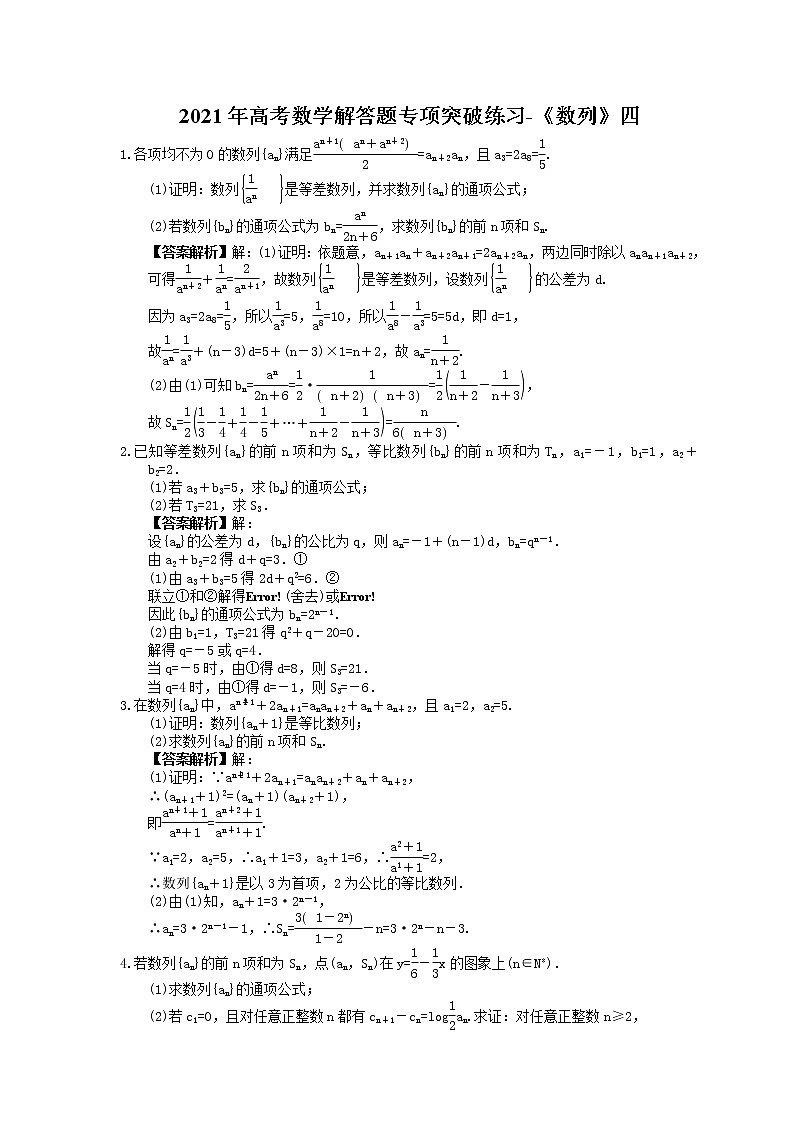 2021年高考数学解答题专项突破练习-《数列》四
1.各项均不为0的数列{aₙ}满足\frac{aₙ₊₁(aₙ+aₙ₊₂)}{2}=aₙ₊₂aₙ,且a₃=2a₈=\frac{1}{5}.
(1)证明:数列{\frac{1}{aₙ}}是等差数列,并求数列{aₙ}的通项公式;
(2)若数列{bₙ}的通项公式为bₙ=\frac{aₙ}{2n+6},求数列{bₙ}的前n项和Sₙ.
【答案解析】解:(1)证明:依题意,aₙ₊₁aₙ+aₙ₊₂aₙ₊₁=2aₙ₊₂aₙ,两边同时除以aₙaₙ₊₁aₙ₊₂,
可得\frac{1}{aₙ₊₂}+\frac{1}{aₙ}=\frac{2}{aₙ₊₁},故数列{\frac{1}{aₙ}}是等差数列,设数列{\frac{1}{aₙ}}的公差为d.
因为a₃=2a₈=\frac{1}{5},所以\frac{1}{a₃}=5,\frac{1}{a₈}=10,所以\frac{1}{a₈}-\frac{1}{a₃}=5=5d,即d=1,
故\frac{1}{aₙ}=\frac{1}{a₃}+(n-3)d=5+(n-3)×1=n+2,故aₙ=\frac{1}{n+2}.
(2)由(1)可知bₙ=\frac{aₙ}{2n+6}=\frac{1}{2}·\frac{1}{(n+2)(n+3)}=\frac{1}{2}(\frac{1}{n+2}-\frac{1}{n+3}),
故Sₙ=\frac{1}{2}(\frac{1}{3}-\frac{1}{4}+\frac{1}{4}-\frac{1}{5}+…+\frac{1}{n+2}-\frac{1}{n+3})=\frac{n}{6(n+3)}.
2.已知等差数列{aₙ}的前n项和为Sₙ,等比数列{bₙ}的前n项和为Tₙ,a₁=-1,b₁=1,a₂+
b₂=2.
(1)若a₃+b₃=5,求{bₙ}的通项公式;
(2)若T₃=21,求S₃.
【答案解析】解:
设{aₙ}的公差为d,{bₙ}的公比为q,则aₙ=-1+(n-1)d,bₙ=qⁿ⁻¹.
由a₂+b₂=2得d+q=3.①
(1)由a₃+b₃=5得2d+q²=6.②
联立①和②解得Error!(舍去)或Error!
因此{bₙ}的通项公式为bₙ=2ⁿ⁻¹.
(2)由b₁=1,T₃=21得q²+q-20=0.
解得q=-5或q=4.
当q=-5时,由①得d=8,则S₃=21.
当q=4时,由①得d=-1,则S₃=-6.
3.在数列{aₙ}中,a²ₙ₊₁+2aₙ₊₁=aₙaₙ₊₂+aₙ+aₙ₊₂,且a₁=2,a₂=5.
(1)证明:数列{aₙ+1}是等比数列;
(2)求数列{aₙ}的前n项和Sₙ.
【答案解析】解:
(1)证明:∵a²ₙ₊₁+2aₙ₊₁=aₙaₙ₊₂+aₙ+aₙ₊₂,
∴(aₙ₊₁+1)²=(aₙ+1)(aₙ₊₂+1),
即\frac{aₙ₊₁+1}{aₙ+1}=\frac{aₙ₊₂+1}{aₙ₊₁+1}.
∵a₁=2,a₂=5,∴a₁+1=3,a₂+1=6,∴\frac{a₂+1}{a₁+1}=2,
∴数列{aₙ+1}是以3为首项,2为公比的等比数列.
(2)由(1)知,aₙ+1=3·2ⁿ⁻¹,
∴aₙ=3·2ⁿ⁻¹-1,∴Sₙ=\frac{3(1-2ⁿ)}{1-2}-n=3·2ⁿ-n-3.
4.若数列{aₙ}的前n项和为Sₙ,点(aₙ,Sₙ)在y=\frac{1}{6}-\frac{1}{3}x的图象上(n∈N*).
(1)求数列{aₙ}的通项公式;
(2)若c₁=0,且对任意正整数n都有cₙ₊₁-cₙ=log\frac{1}{2}aₙ.求证:对任意正整数n≥2,